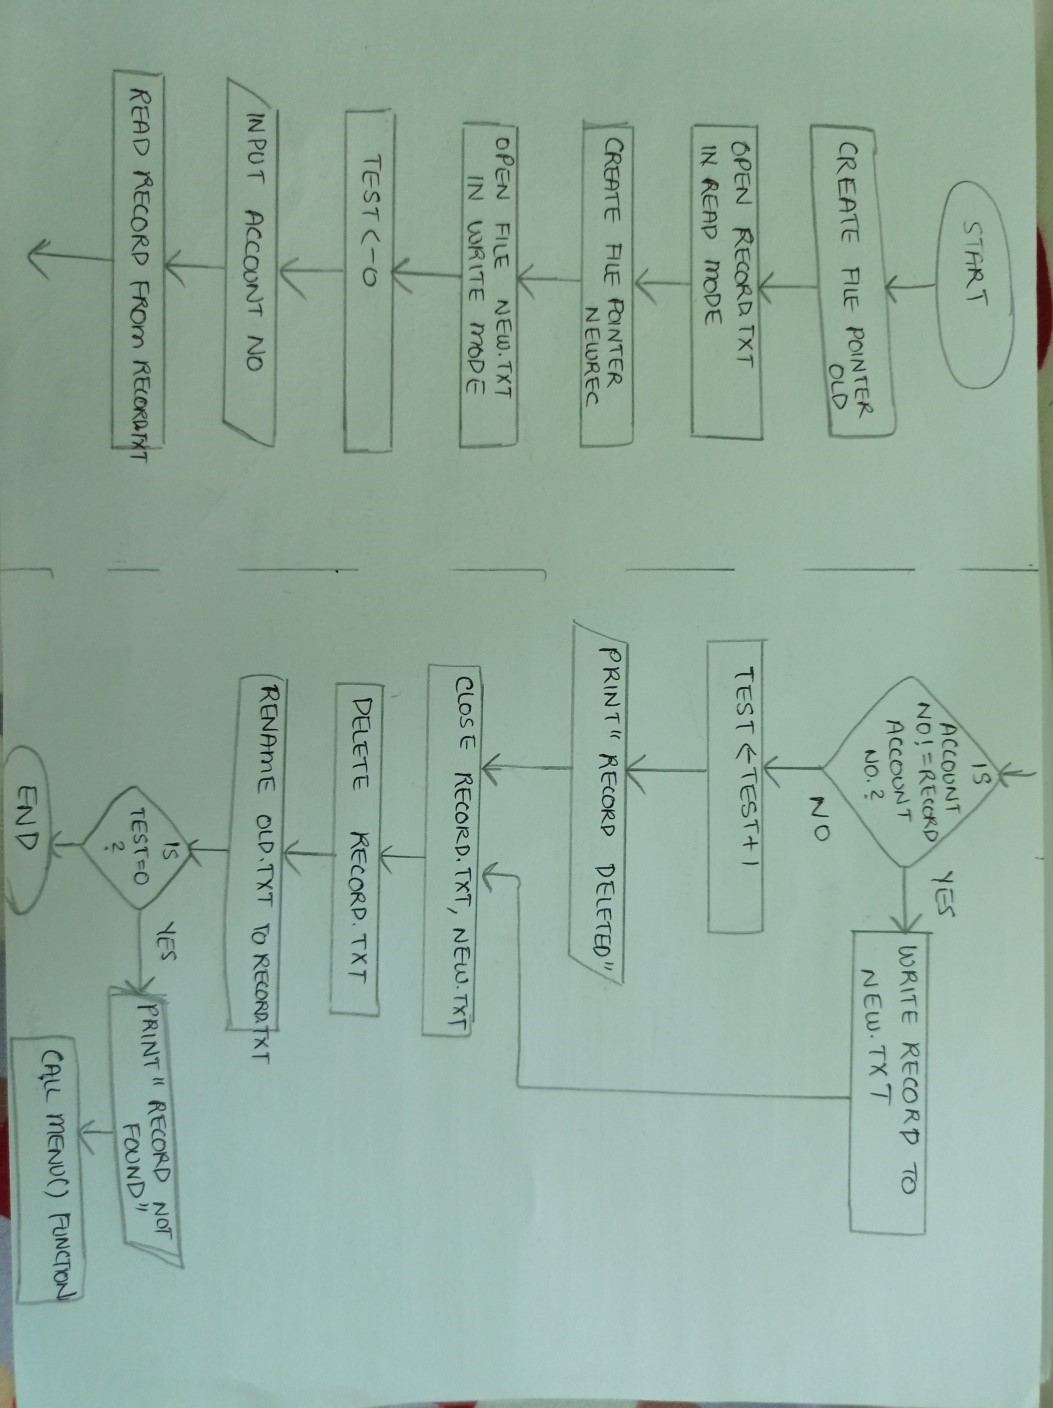 START
CREATE FILE POINTER
OLD
OPEN RECORD.TXT
IN READ MODE
CREATE FILE POINTER
NEWREC
OPEN FILE NEW.TXT
IN WRITE MODE
TEST<-0
INPUT ACCOUNT NO
READ RECORD FROM RECORD.TXT
IS
ACCOUNT
NO!=RECORD
ACCOUNT
NO.?
YES
WRITE RECORD TO
NEW.TXT
NO
TEST<-TEST+1
PRINT" RECORD DELETED"
CLOSE RECORD.TXT, NEW.TXT
DELETE RECORD.TXT
RENAME OLD.TXT TO RECORD.TXT
IS
TEST=0
?
YES
PRINT" RECORD NOT
FOUND"
CALL MENU() FUNCTION
END